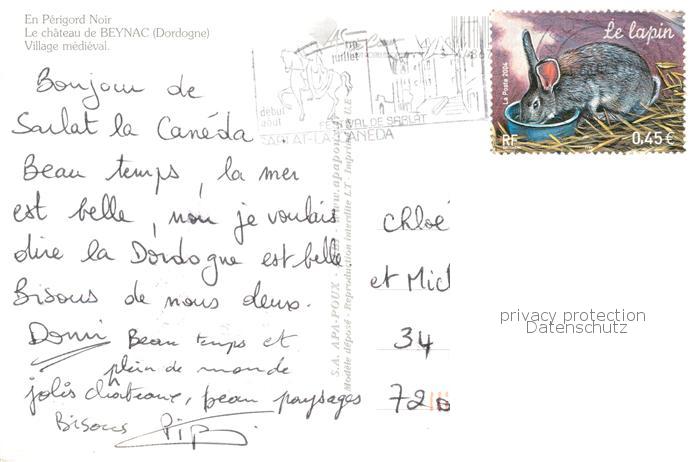 En Périgord Noir
Le château de BEYNAC (Dordogne)
Village médiéval.
Bonjour de
Sarlat la Canéda
Beau temps, la mer
est belle, non je voulais
dire la Dordogne est belle
Bisous de nous deux.
Domi Beau temps et
plein de monde
jolis châteaux, beau paysages
Bisous PiP
juillet
début
août
FESTIVAL DE SARLAT
SARLAT-LA-CANEDA
S.A. APA-POUX - www.apapoux
Modèle déposé - Reproduction interdite LT - Imprimé
Le lapin
La Poste 2004
RF
0,45 €
Chloé
et Mic
34
72
privacy protection
Datenschutz